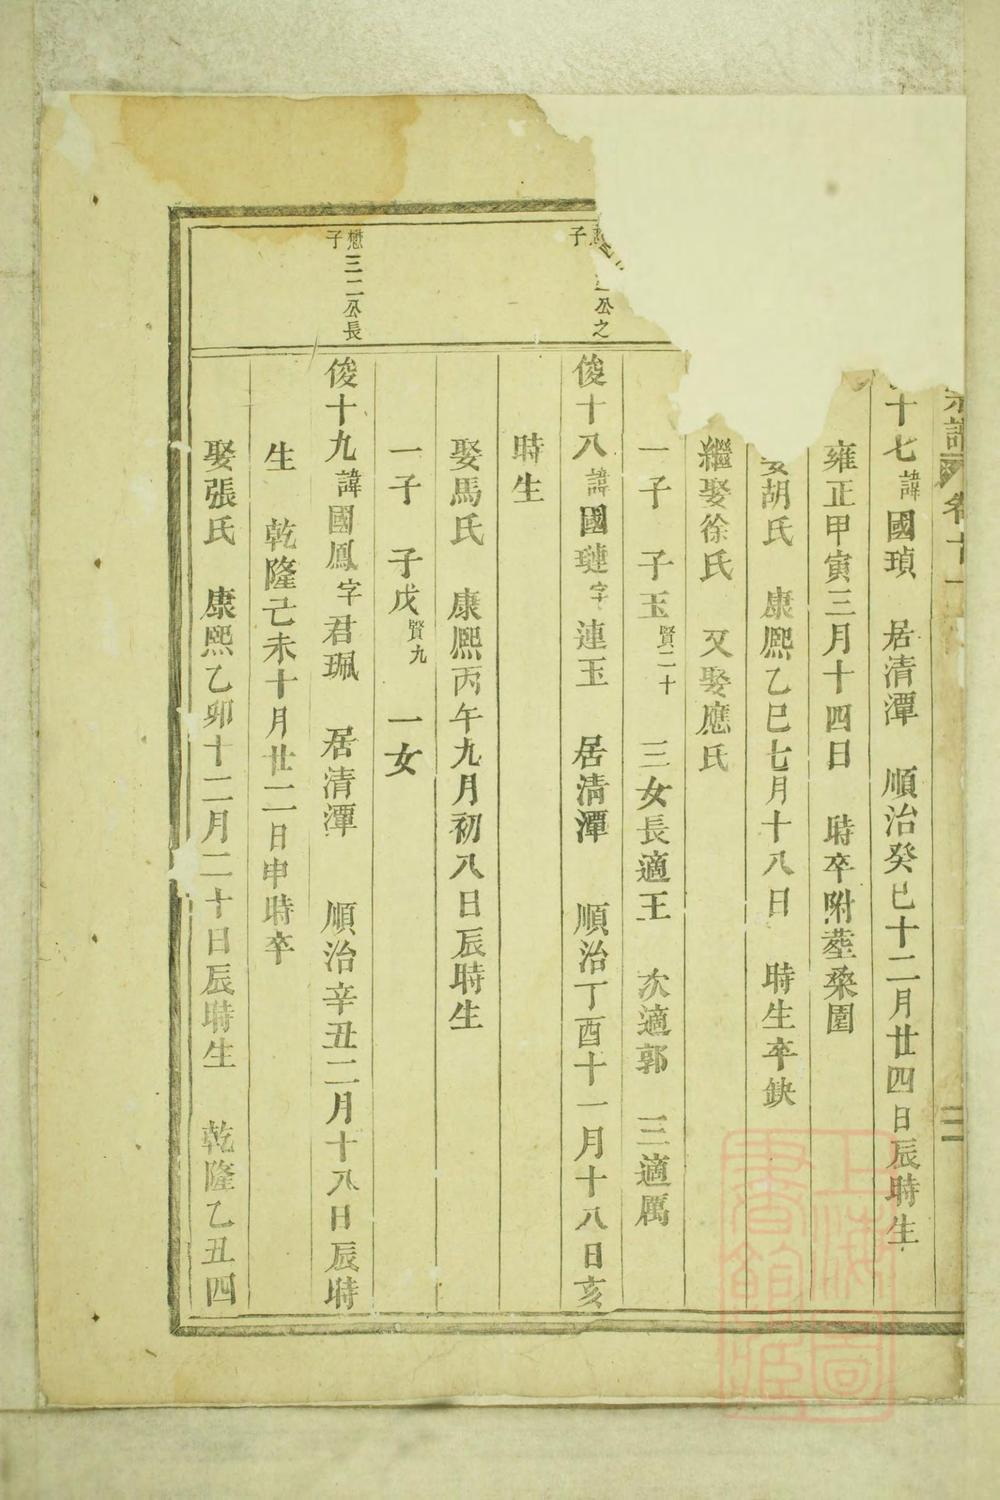 宗譜 卷十一 三
十七諱國瑱 居清潭 順治癸巳十二月廿四日辰時生
雍正甲寅三月十四日 時卒附塟桑園
娶胡氏 康熙乙巳七月十八日 時生卒缺
繼娶徐氏 又娶應氏
一子 子玉賢二十 三女長適王 次適郭 三適厲
公之子
俊十八諱國璉字連玉 居清潭 順治丁酉十一月十八日亥
時生
娶馬氏 康熙丙午九月初八日辰時生
一子 子戊賢九 一女
懋三二公長子
俊十九諱國鳳字君珮 居清潭 順治辛丑二月十八日辰時
生 乾隆己未十月廿二日申時卒
娶張氏 康熙乙卯十二月二十日辰時生 乾隆乙丑四
上海圖書館藏